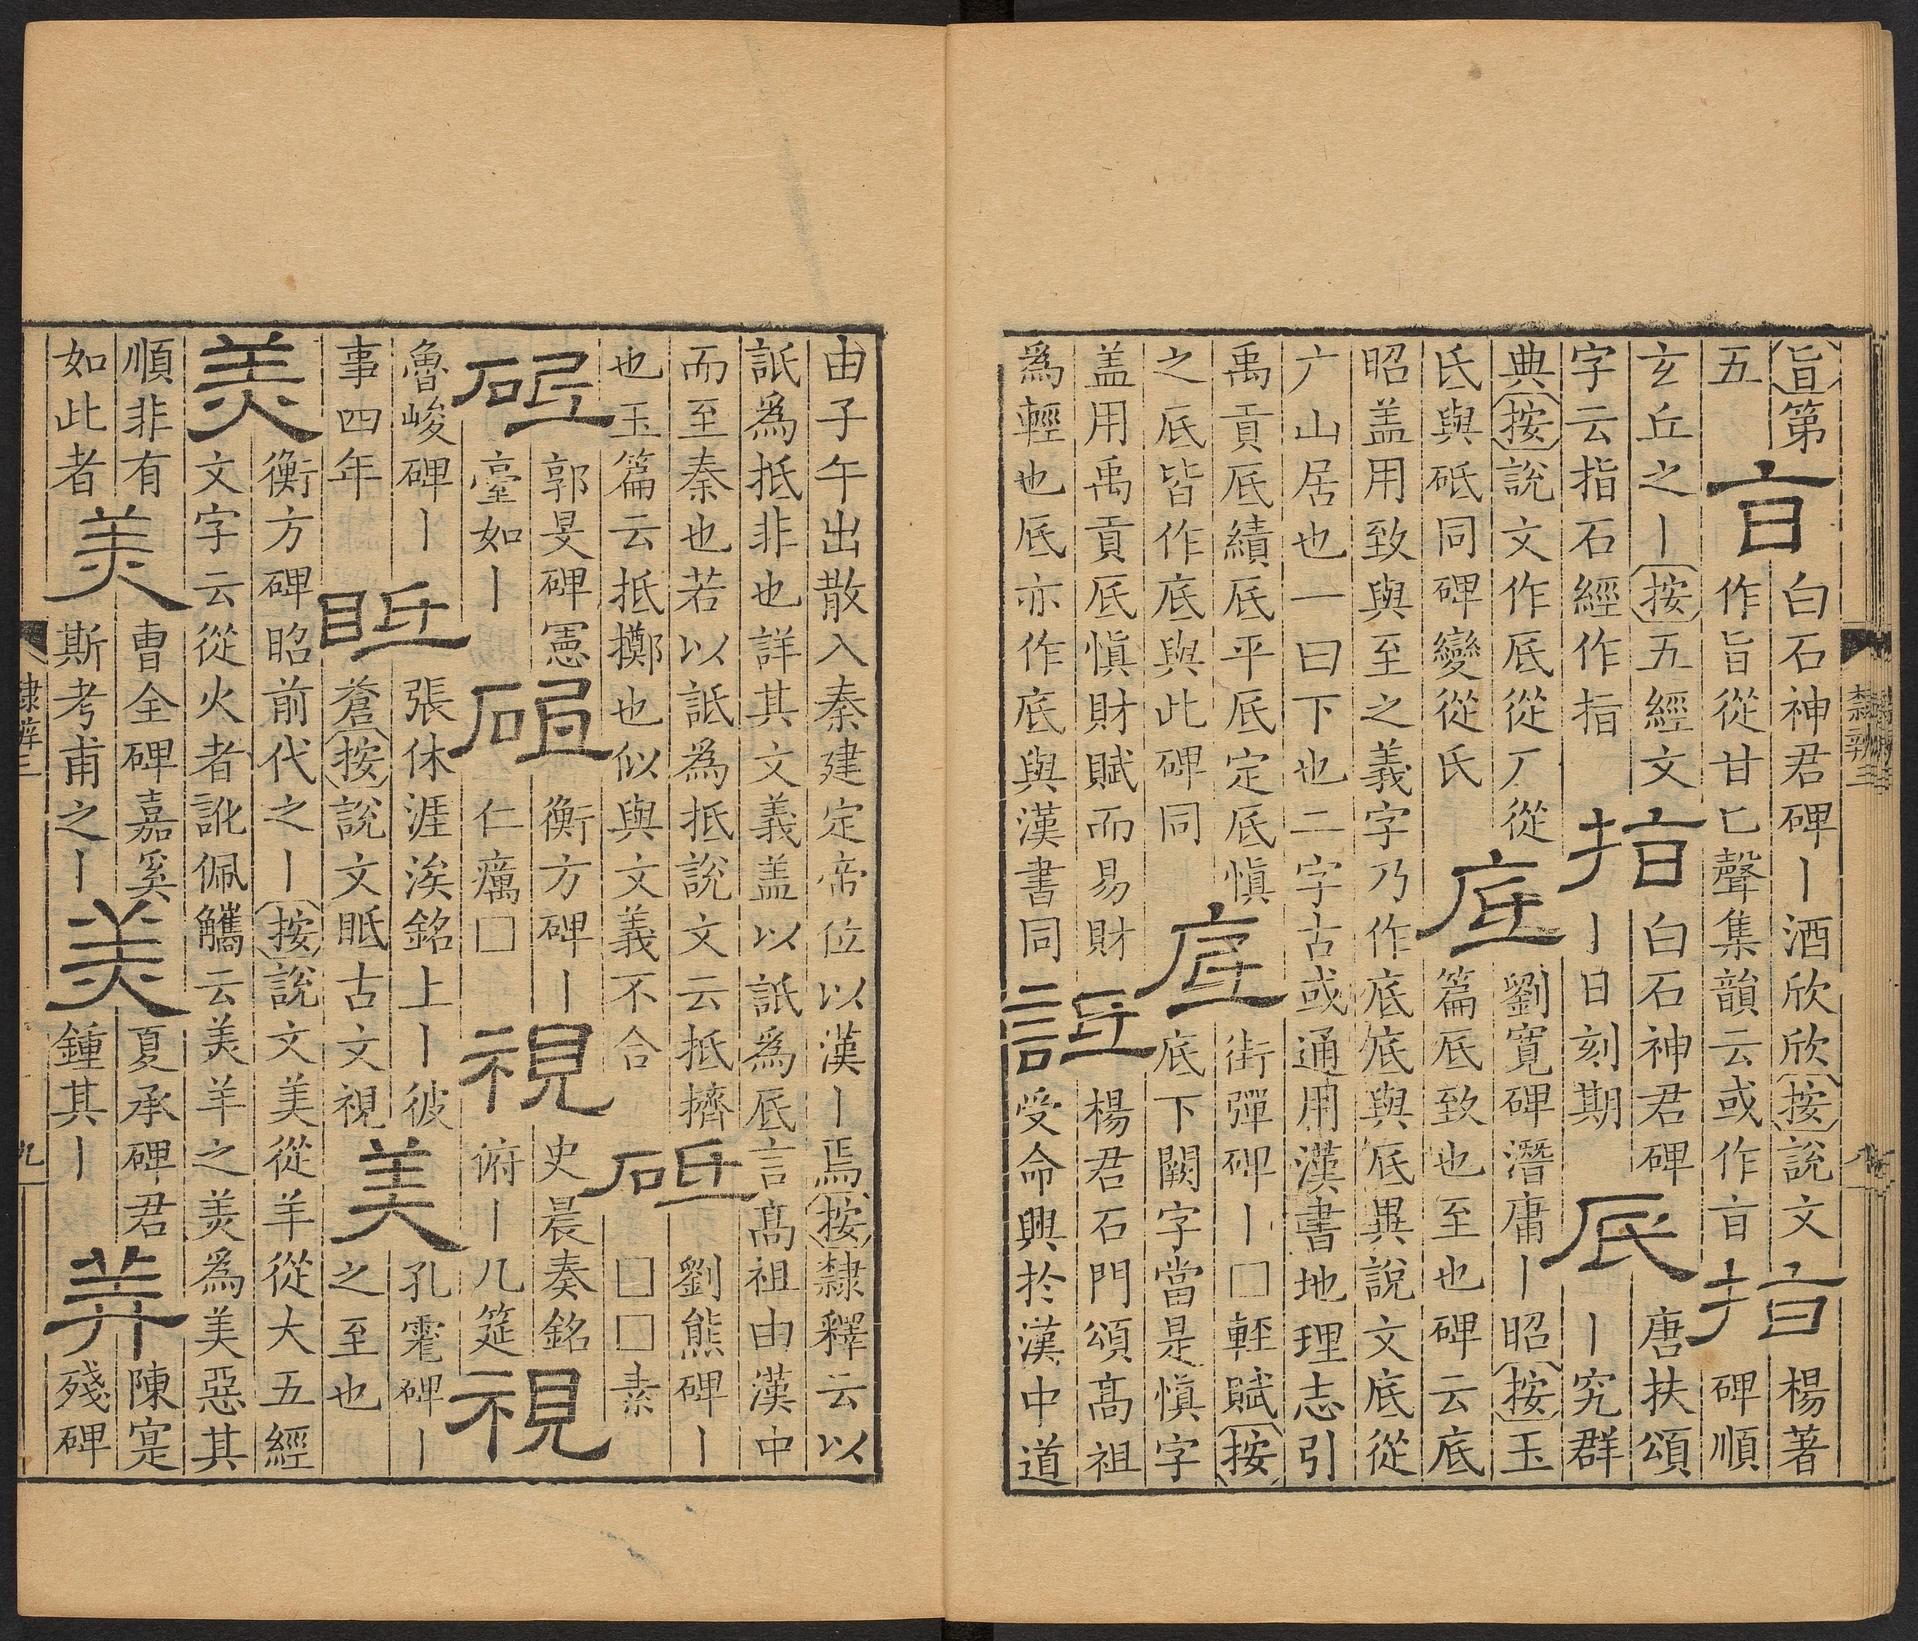 旨第旨白石神君碑丨酒欣欣按說文指楊著
五作旨從甘匕聲集韻云或作㫖碑順
玄丘之丨按五經文指白石神君碑厎唐扶頌
字云指石經作指丨日刻期丨究群
典按說文作厎從厂從底劉寬碑潛庸丨昭按玉
氐與砥同碑變從氏篇厎致也至也碑云底
昭盖用致與至之義字乃作底底與厎異說文底從
广山居也一曰下也二字古或通用漢書地理志引
禹貢厎績厎平厎定厎慎底街彈碑丨□輕賦按
之厎皆作底與此碑同底下闕字當是慎字
盖用禹貢厎慎財賦而易財詆楊君石門頌髙祖
為輕也厎亦作底與漢書同受命興於漢中道
由子午出散入秦建定帝位以漢丨焉按隸釋云以
詆為抵非也詳其文義盖以詆為厎言髙祖由漢中
而至秦也若以詆為抵說文云抵擠砥劉熊碑丨
也玉篇云抵擲也似與文義不合□□素
砥郭旻碑憲衡方碑丨視史晨奏銘視
臺如丨仁癘□俯丨几筵
魯峻碑丨眡張休涯涘銘上丨彼美孔宙碑丨
事四年蒼按說文眡古文視之至也
羙衡方碑昭前代之丨按說文美從羊從大五經
文字云從火者訛佩觿云羙羊之羙為美惡其
順非有羙曹全碑嘉奚羙夏承碑君陳寔
如此者斯考甫之丨鍾其丨殘碑
隸辨三
九